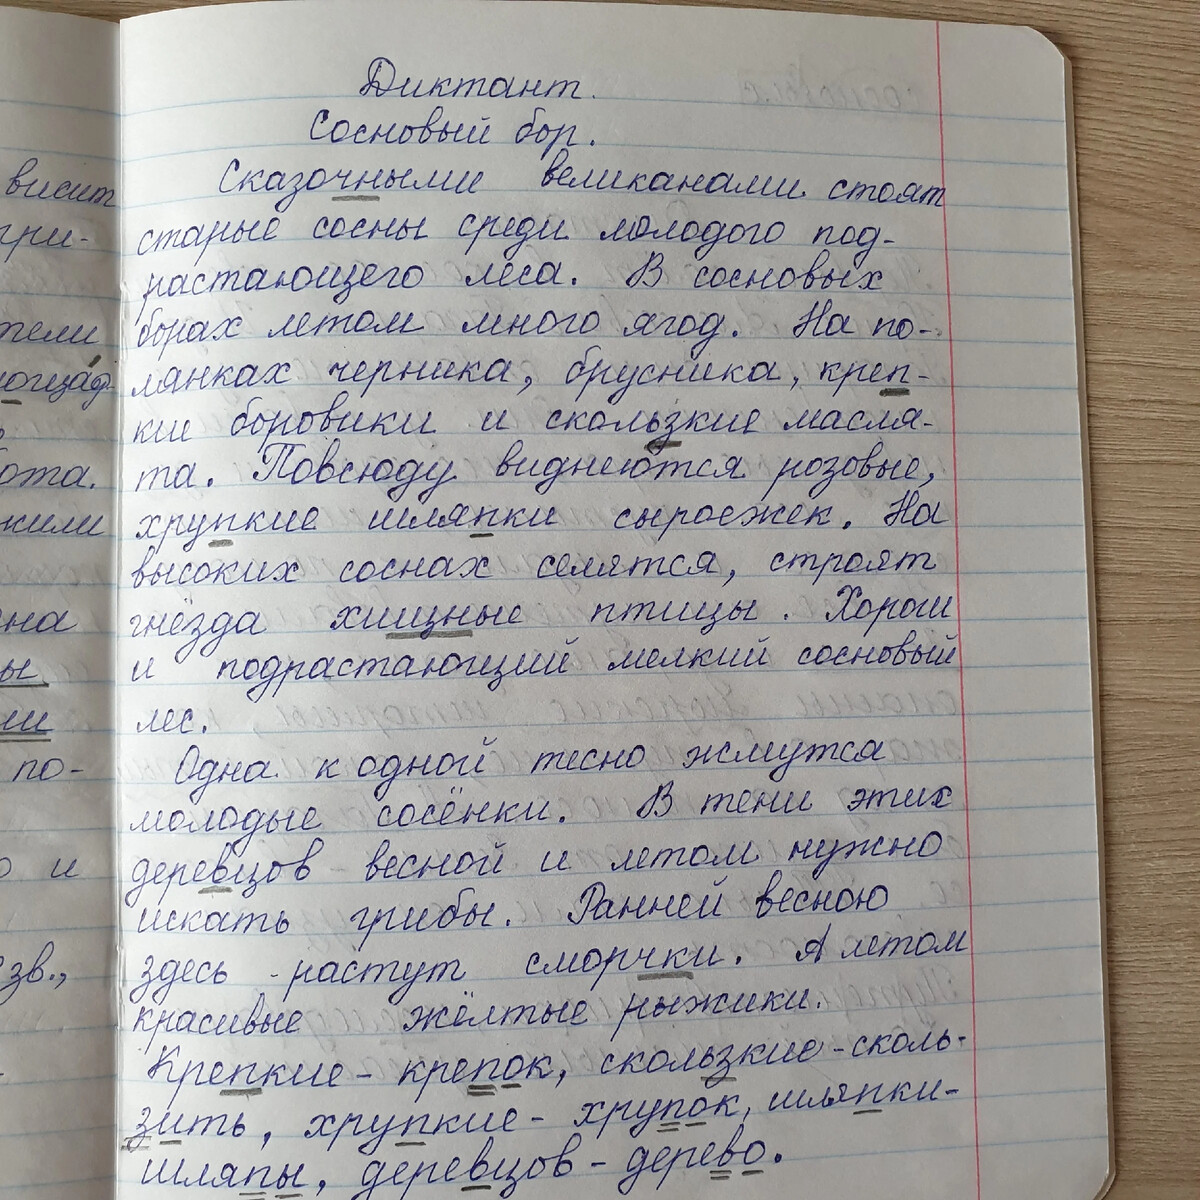 Диктант.
Сосновый бор.
Сказочными великанами стоят
старые сосны среди молодого под-
растающего леса. В сосновых
борах летом много ягод. На по-
лянках черника, брусника, креп-
кие боровики и скользкие масля-
та. Повсюду виднеются розовые,
хрупкие шляпки сыроежек. На
высоких соснах селятся, строят
гнёзда хищные птицы. Хорош
и подрастающий мелкий сосновый
лес.
Одна к одной тесно жмутся
молодые сосёнки. В тени этих
деревцов весной и летом нужно
искать грибы. Ранней весною
здесь растут сморчки. А летом
красивые жёлтые рыжики.
Крепкие - крепок, скользкие - сколь-
зить, хрупкие - хрупок, шляпки -
шляпы, деревцов - дерево.
висит
гри-
тели
ота.
жили
на
ы
ии
по-
о и
зв.,